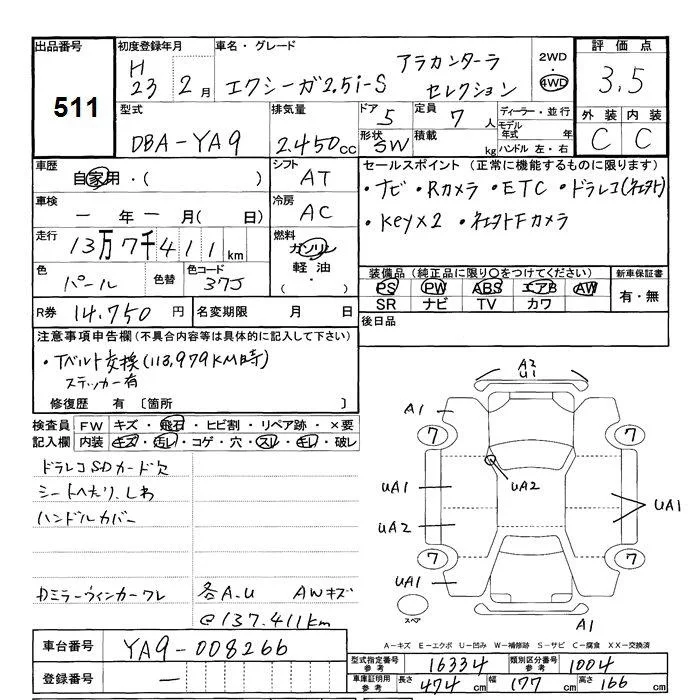 出品番号
511
初度登録年月
H
23 2月
車名・グレード
エクシーガ2.5i-S アラカンターラ
セレクション
2WD
・
4WD
評価点
3,5
外装 内装
C C
型式
DBA-YA9
排気量
2.450cc
ドア 5
形状 SW
定員 7人
積載 kg
ディーラー・並行
モデル
年式 年
ハンドル 左・右
車歴
自家用・( )
シフト
AT
車検
一年一月(日)
冷房
AC
走行
13万7千411km
燃料
ガソリン
軽油
( )
色
パール
色替
色コード
37J
R券 14.750円
名変期限 月 日
セールスポイント(正常に機能するものに限ります)
・ナビ・Rカメラ・ETC・ドラレコ(社外)
・Key×2 ・社外Fカメラ
装備品(純正品に限り○をつけてください)
PS PW ABS エアB AW
SR ナビ TV カワ
新車保証書
有・無
後日品
注意事項申告欄(不具合内容等は具体的に記入して下さい)
・Tベルト交換(113,979KM時)
ステッカー有
修復歴 有〔箇所 〕
検査員 FW キズ・飛石・ヒビ割・リペア跡・×要
記入欄 内装 キズ・汚レ・コゲ・穴・スレ・キレ・破レ
ドラレコSDカード欠
シートへたり、しわ
ハンドルカバー
カミラーウィンカーワレ
各A.U AWキズ
@137.411km
A2
U1
A1
7
7
UA2
UA1
UA2
UA1
7
7
UA1
A1
スペア
A-キズ E-エクボ U-凹み W-補修跡 S-サビ C-腐食 XX-交換済
車台番号 YA9-008266
登録番号 一
型式指定番号
参考
16334
類別区分番号
参考
1004
車庫証明用
参考
長さ 474cm
幅 177cm
高さ 166cm